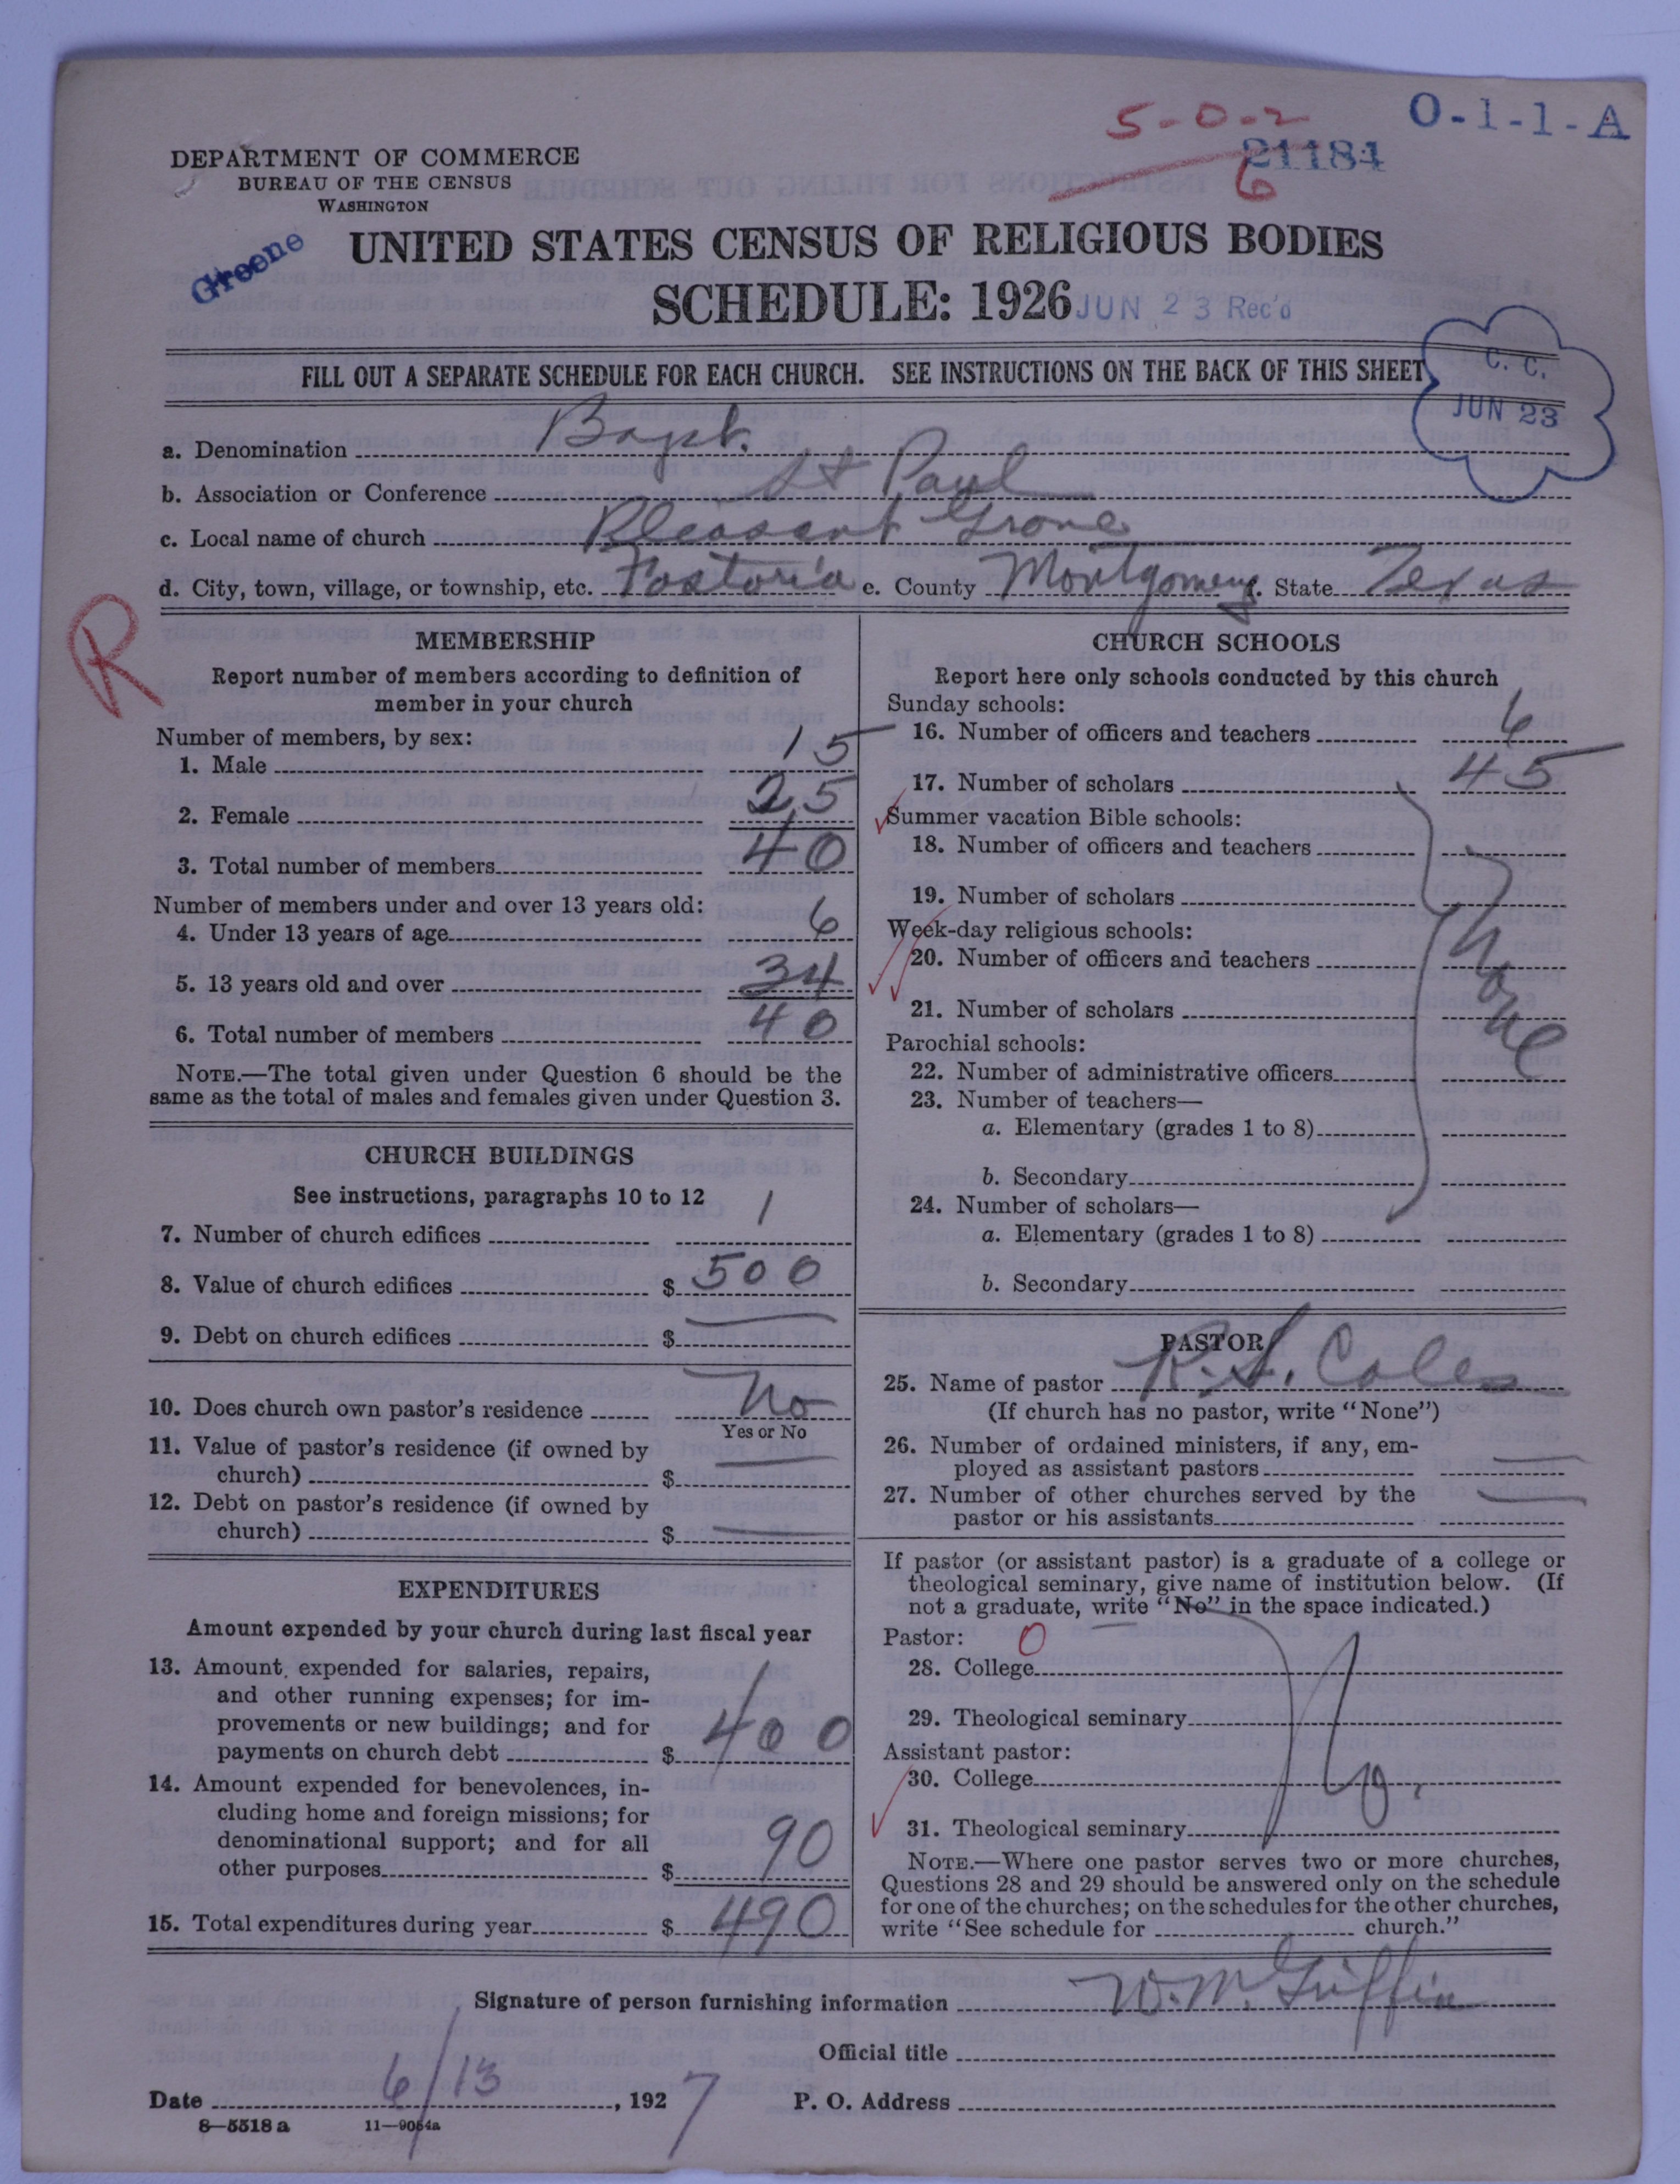 5-0-2
O-1-1-A
21184
6
DEPARTMENT OF COMMERCE
BUREAU OF THE CENSUS
WASHINGTON
Greene
UNITED STATES CENSUS OF RELIGIOUS BODIES
SCHEDULE: 1926
JUN 23 Rec'd
FILL OUT A SEPARATE SCHEDULE FOR EACH CHURCH. SEE INSTRUCTIONS ON THE BACK OF THIS SHEET
C. C.
JUN 23
a. Denomination Bapt.
b. Association or Conference St Paul
c. Local name of church Pleasant Grove
d. City, town, village, or township, etc. Fostoria e. County Montgomery f. State Texas
R
MEMBERSHIP
Report number of members according to definition of
member in your church
Number of members, by sex:
1. Male 15
2. Female 25
3. Total number of members 40
Number of members under and over 13 years old:
4. Under 13 years of age 6
5. 13 years old and over 34
6. Total number of members 40
NOTE.—The total given under Question 6 should be the
same as the total of males and females given under Question 3.
CHURCH BUILDINGS
See instructions, paragraphs 10 to 12
7. Number of church edifices 1
8. Value of church edifices $ 500
9. Debt on church edifices $
10. Does church own pastor's residence No
Yes or No
11. Value of pastor's residence (if owned by
church) $
12. Debt on pastor's residence (if owned by
church) $
EXPENDITURES
Amount expended by your church during last fiscal year
13. Amount expended for salaries, repairs,
and other running expenses; for im-
provements or new buildings; and for
payments on church debt $ 400
14. Amount expended for benevolences, in-
cluding home and foreign missions; for
denominational support; and for all
other purposes $ 90
15. Total expenditures during year $ 490
CHURCH SCHOOLS
Report here only schools conducted by this church
Sunday schools:
16. Number of officers and teachers 6
17. Number of scholars 45
Summer vacation Bible schools:
18. Number of officers and teachers
19. Number of scholars
Week-day religious schools:
20. Number of officers and teachers
None
21. Number of scholars
Parochial schools:
22. Number of administrative officers
23. Number of teachers—
a. Elementary (grades 1 to 8)
b. Secondary
24. Number of scholars—
a. Elementary (grades 1 to 8)
b. Secondary
PASTOR
25. Name of pastor R. S. Coles
(If church has no pastor, write "None")
26. Number of ordained ministers, if any, em-
ployed as assistant pastors
27. Number of other churches served by the
pastor or his assistants
If pastor (or assistant pastor) is a graduate of a college or
theological seminary, give name of institution below. (If
not a graduate, write "No" in the space indicated.)
Pastor: 0
28. College
29. Theological seminary
Assistant pastor:
No.
30. College
31. Theological seminary
NOTE.—Where one pastor serves two or more churches,
Questions 28 and 29 should be answered only on the schedule
for one of the churches; on the schedules for the other churches,
write "See schedule for church."
Signature of person furnishing information W. M. Griffin
Official title
Date 6/13, 1927 P. O. Address
8—5518 a 11—9064a